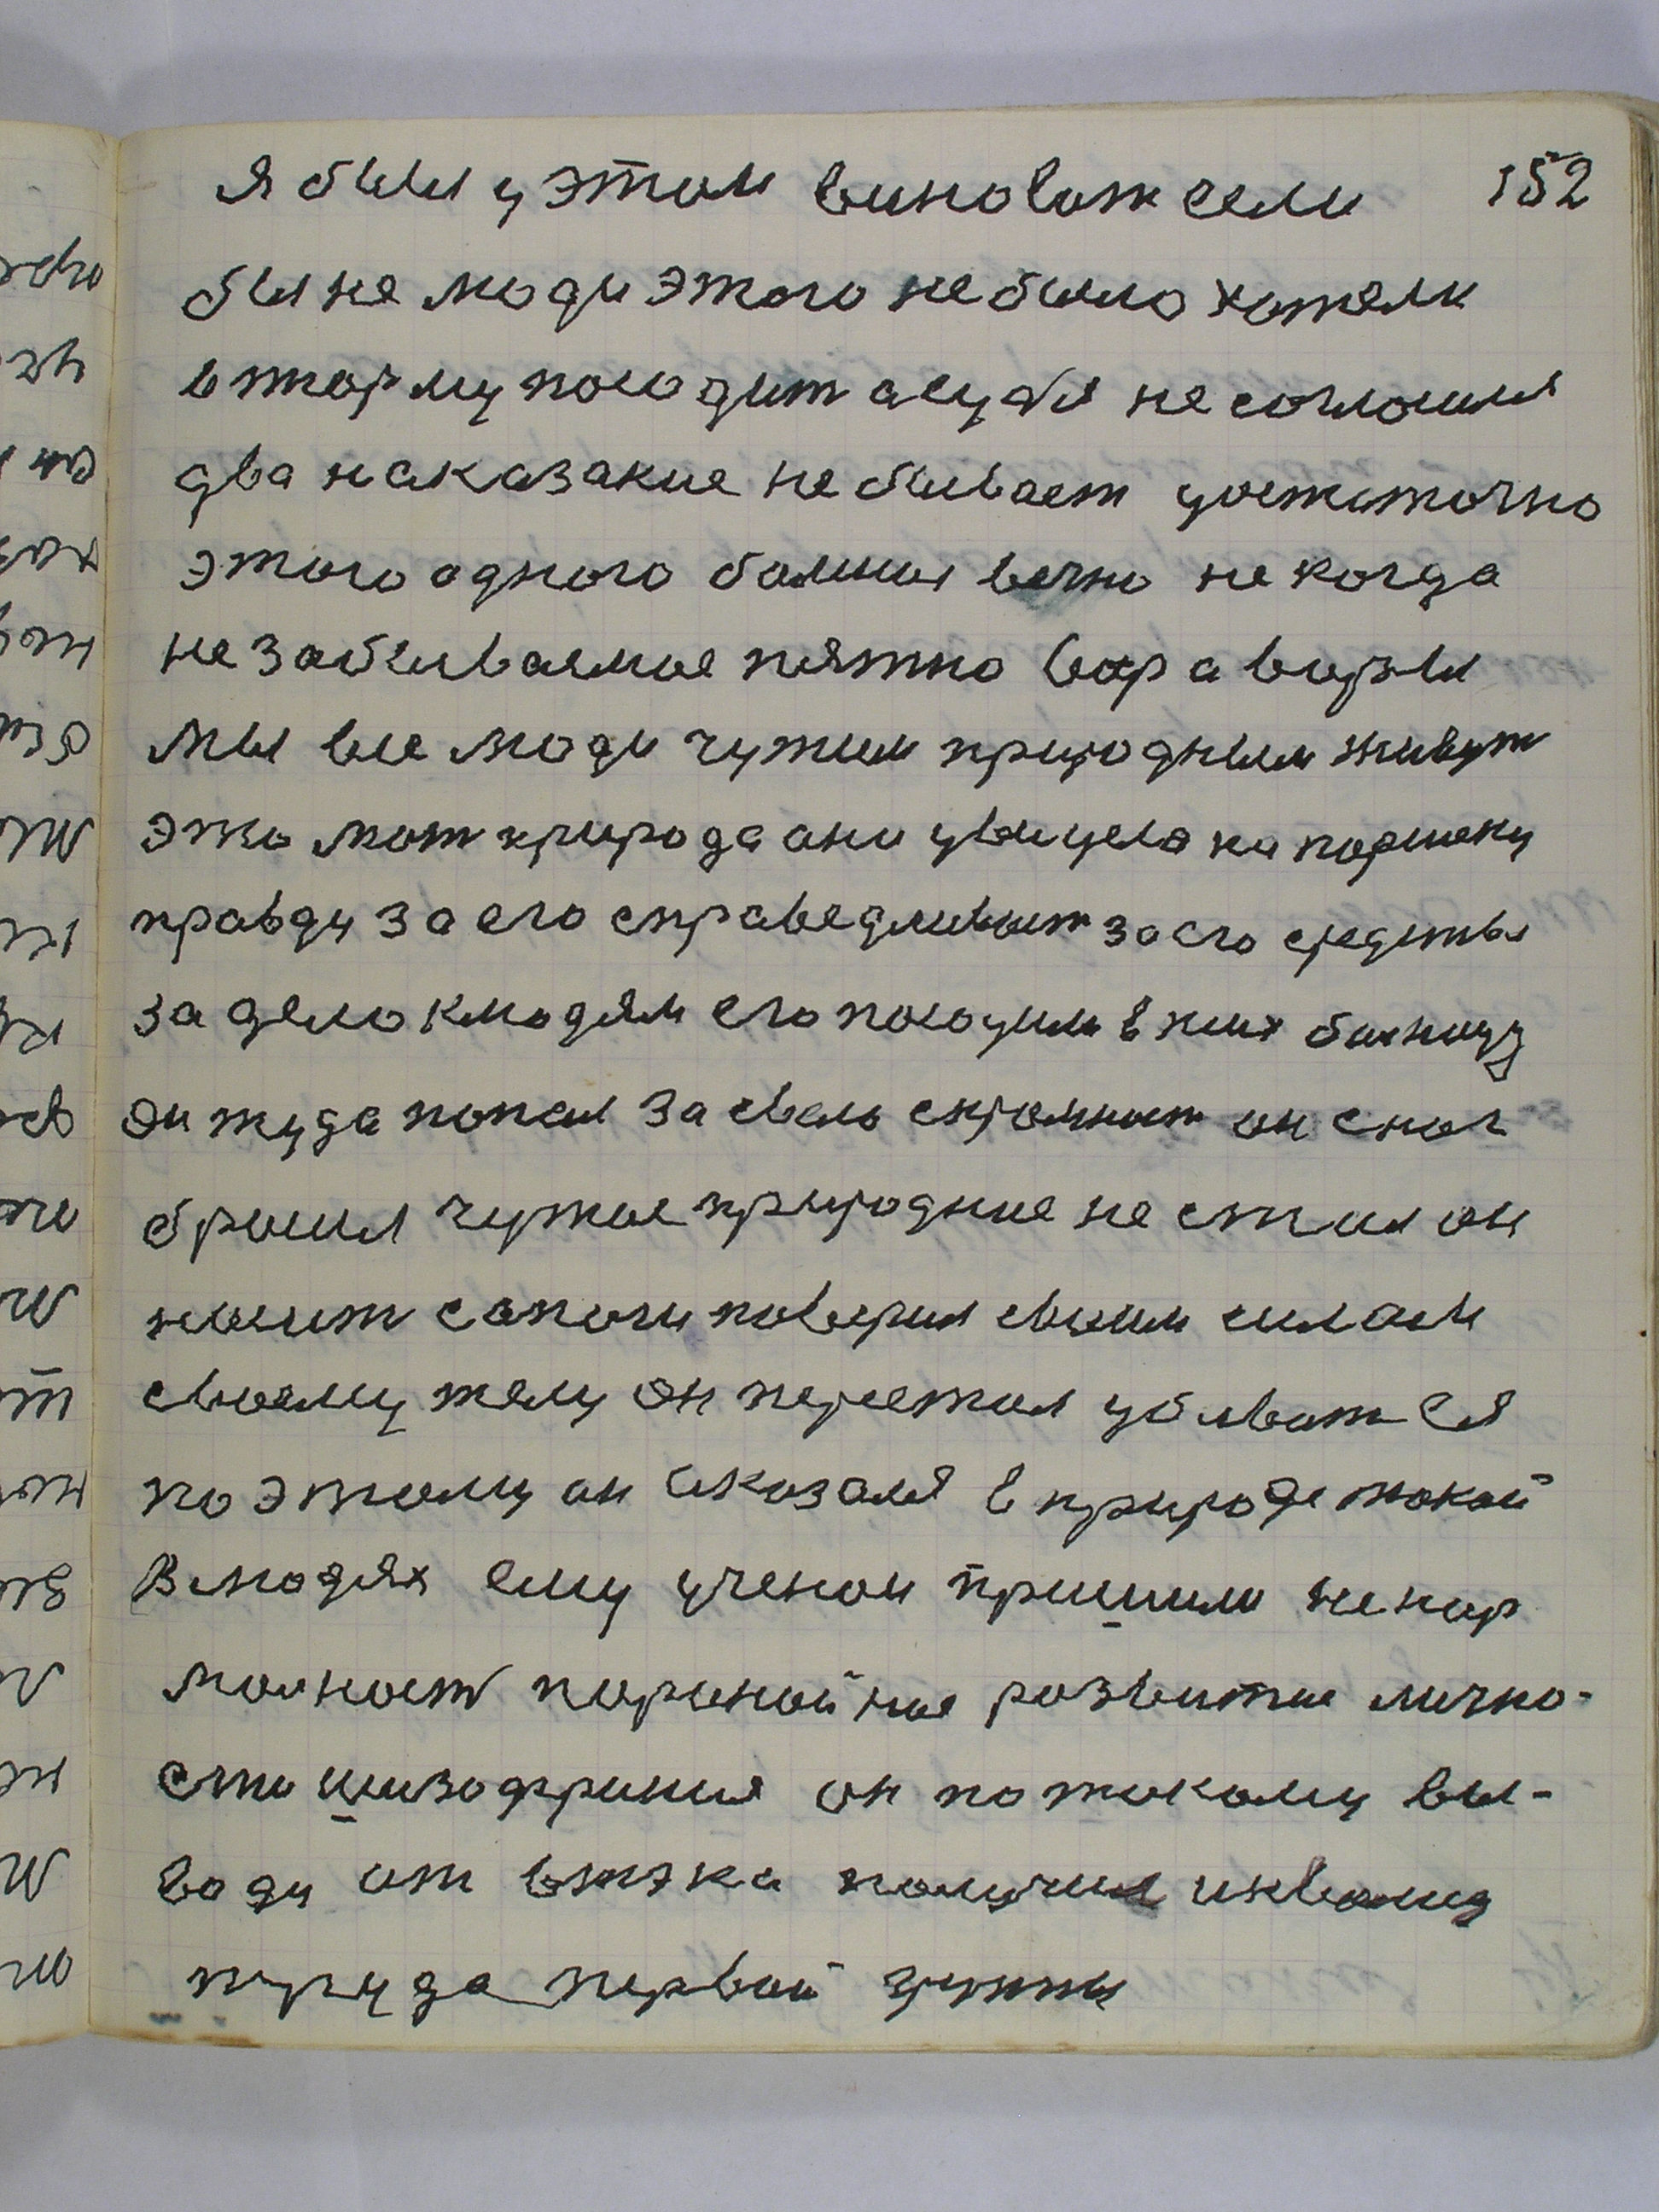 я был у этом виноват если 152
бы не люди этого не было хотели
в тюрму посодит а суд я не согласился
два наказание не бывает достаточно
этого одного балшая вечно некогда
не забываемое пятно вор а воры
мы все люди чужим природным живут
это мат природа они увидела на
правду за его справедливост за его средства
за дело к людям его посодили в псих болницу
он туда попал за свою скромност он снял
бросил чужое природние не стал он
носит сапоги поверил своим силам
своему телу он перестал убиватся
по этому он оказался в природе такой
в людях ему ученаи пришили ненор
малност парынойние развитие лично-
сти шизофрения он по такому вы-
воду от втэка получил инвалид
труда первой групы